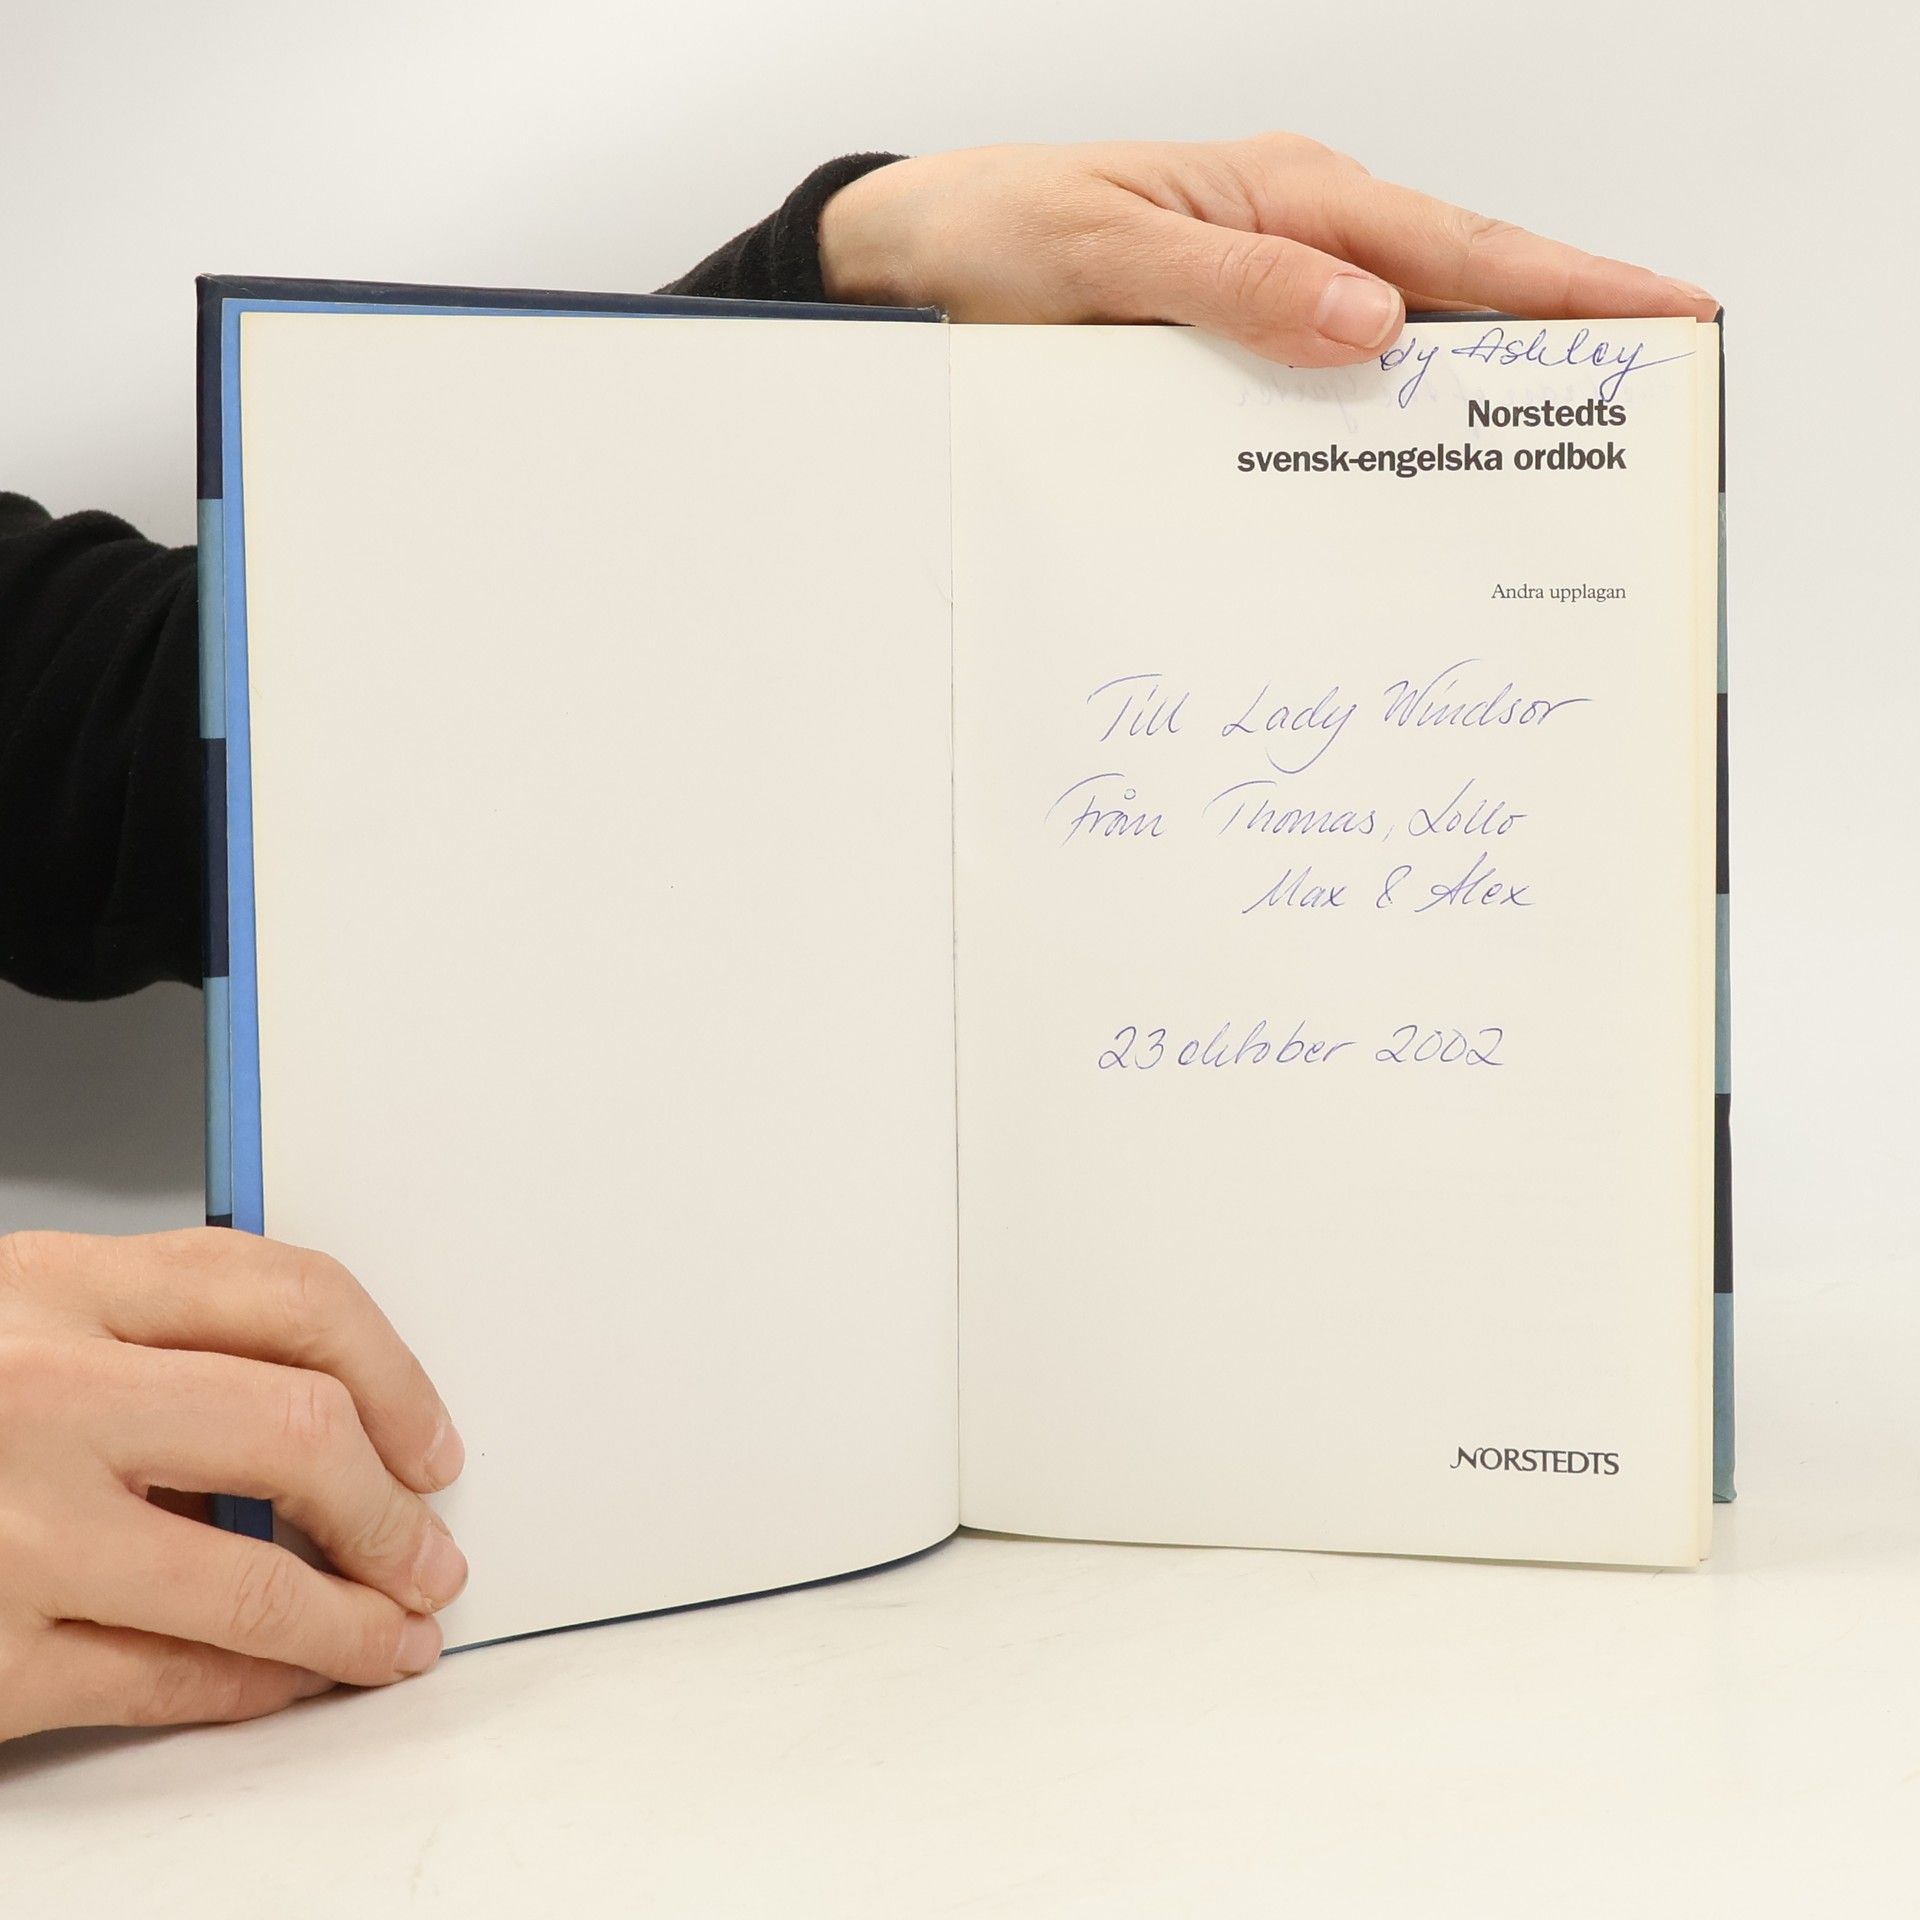 dy Ashley
Norstedts
svensk-engelska ordbok
Andra upplagan
Till Lady Windsor
Från Thomas, Lollo
Max & Alex
23 oktober 2002
NORSTEDTS